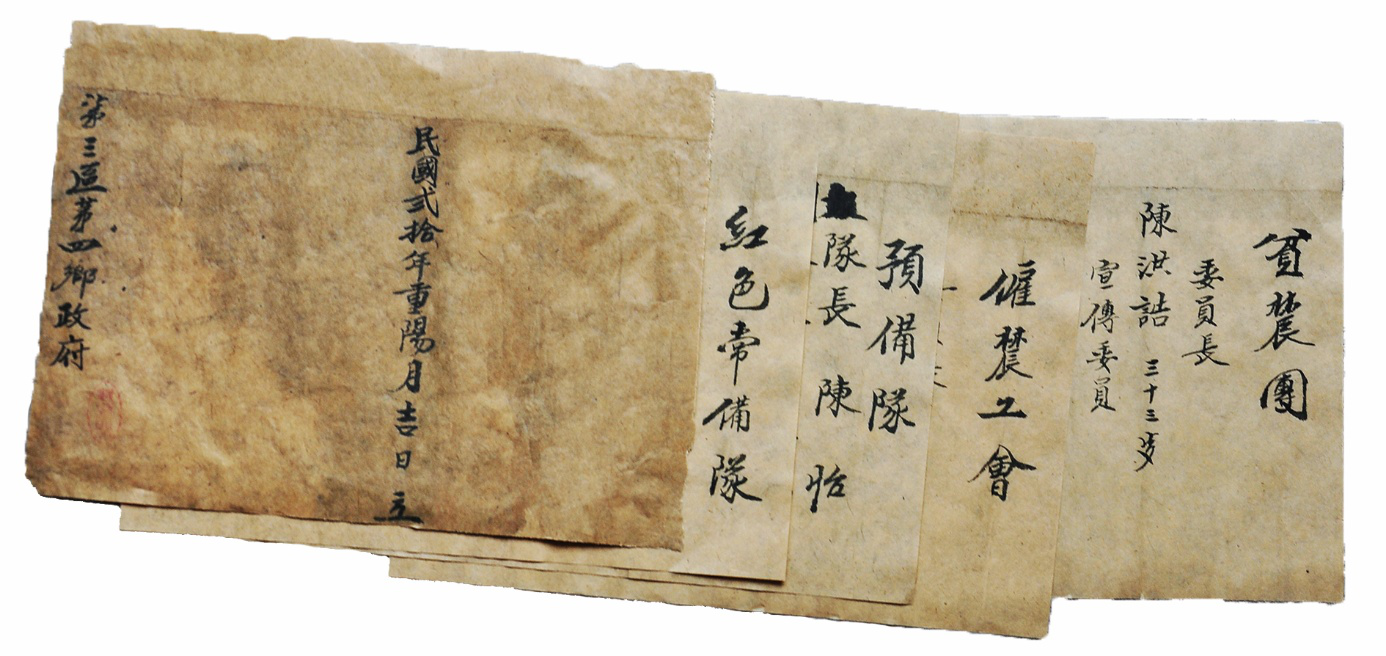 貧農團
委員長
陳洪誥 三十三岁
宣傳委員
僱農工會
預備隊
隊長 陳怡
紅色常備隊
民國弍拾年重陽月吉日 立
第三區第四鄉政府